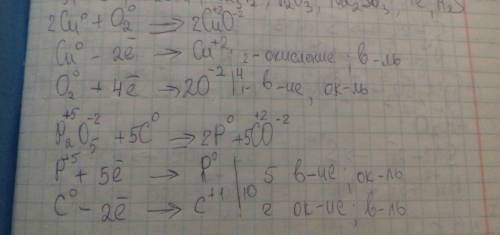 2Cu⁰ + O₂⁰ → 2Cu⁺²O⁻²
Cu⁰ - 2ē → Cu⁺² 2 - окисление; в-ль
O₂⁰ + 4ē → 2O⁻² | 4 1 - в-ие, ок-ль
P₂⁺⁵O₅⁻² + 5C⁰ → 2P⁰ + 5C⁺²O⁻²
P⁺⁵ + 5ē → P⁰ | 5 в-ие; ок-ль
C⁰ - 2ē → C⁺¹ | 10 2 ок-ие; в-ль